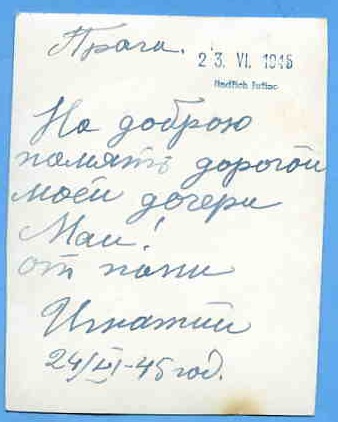 Прага.
23. VI. 1945
Jindřich
На доброю
памятъ дорогой
моей дочери
Маи!
от папи
Игнатий
24/VI-45 год.